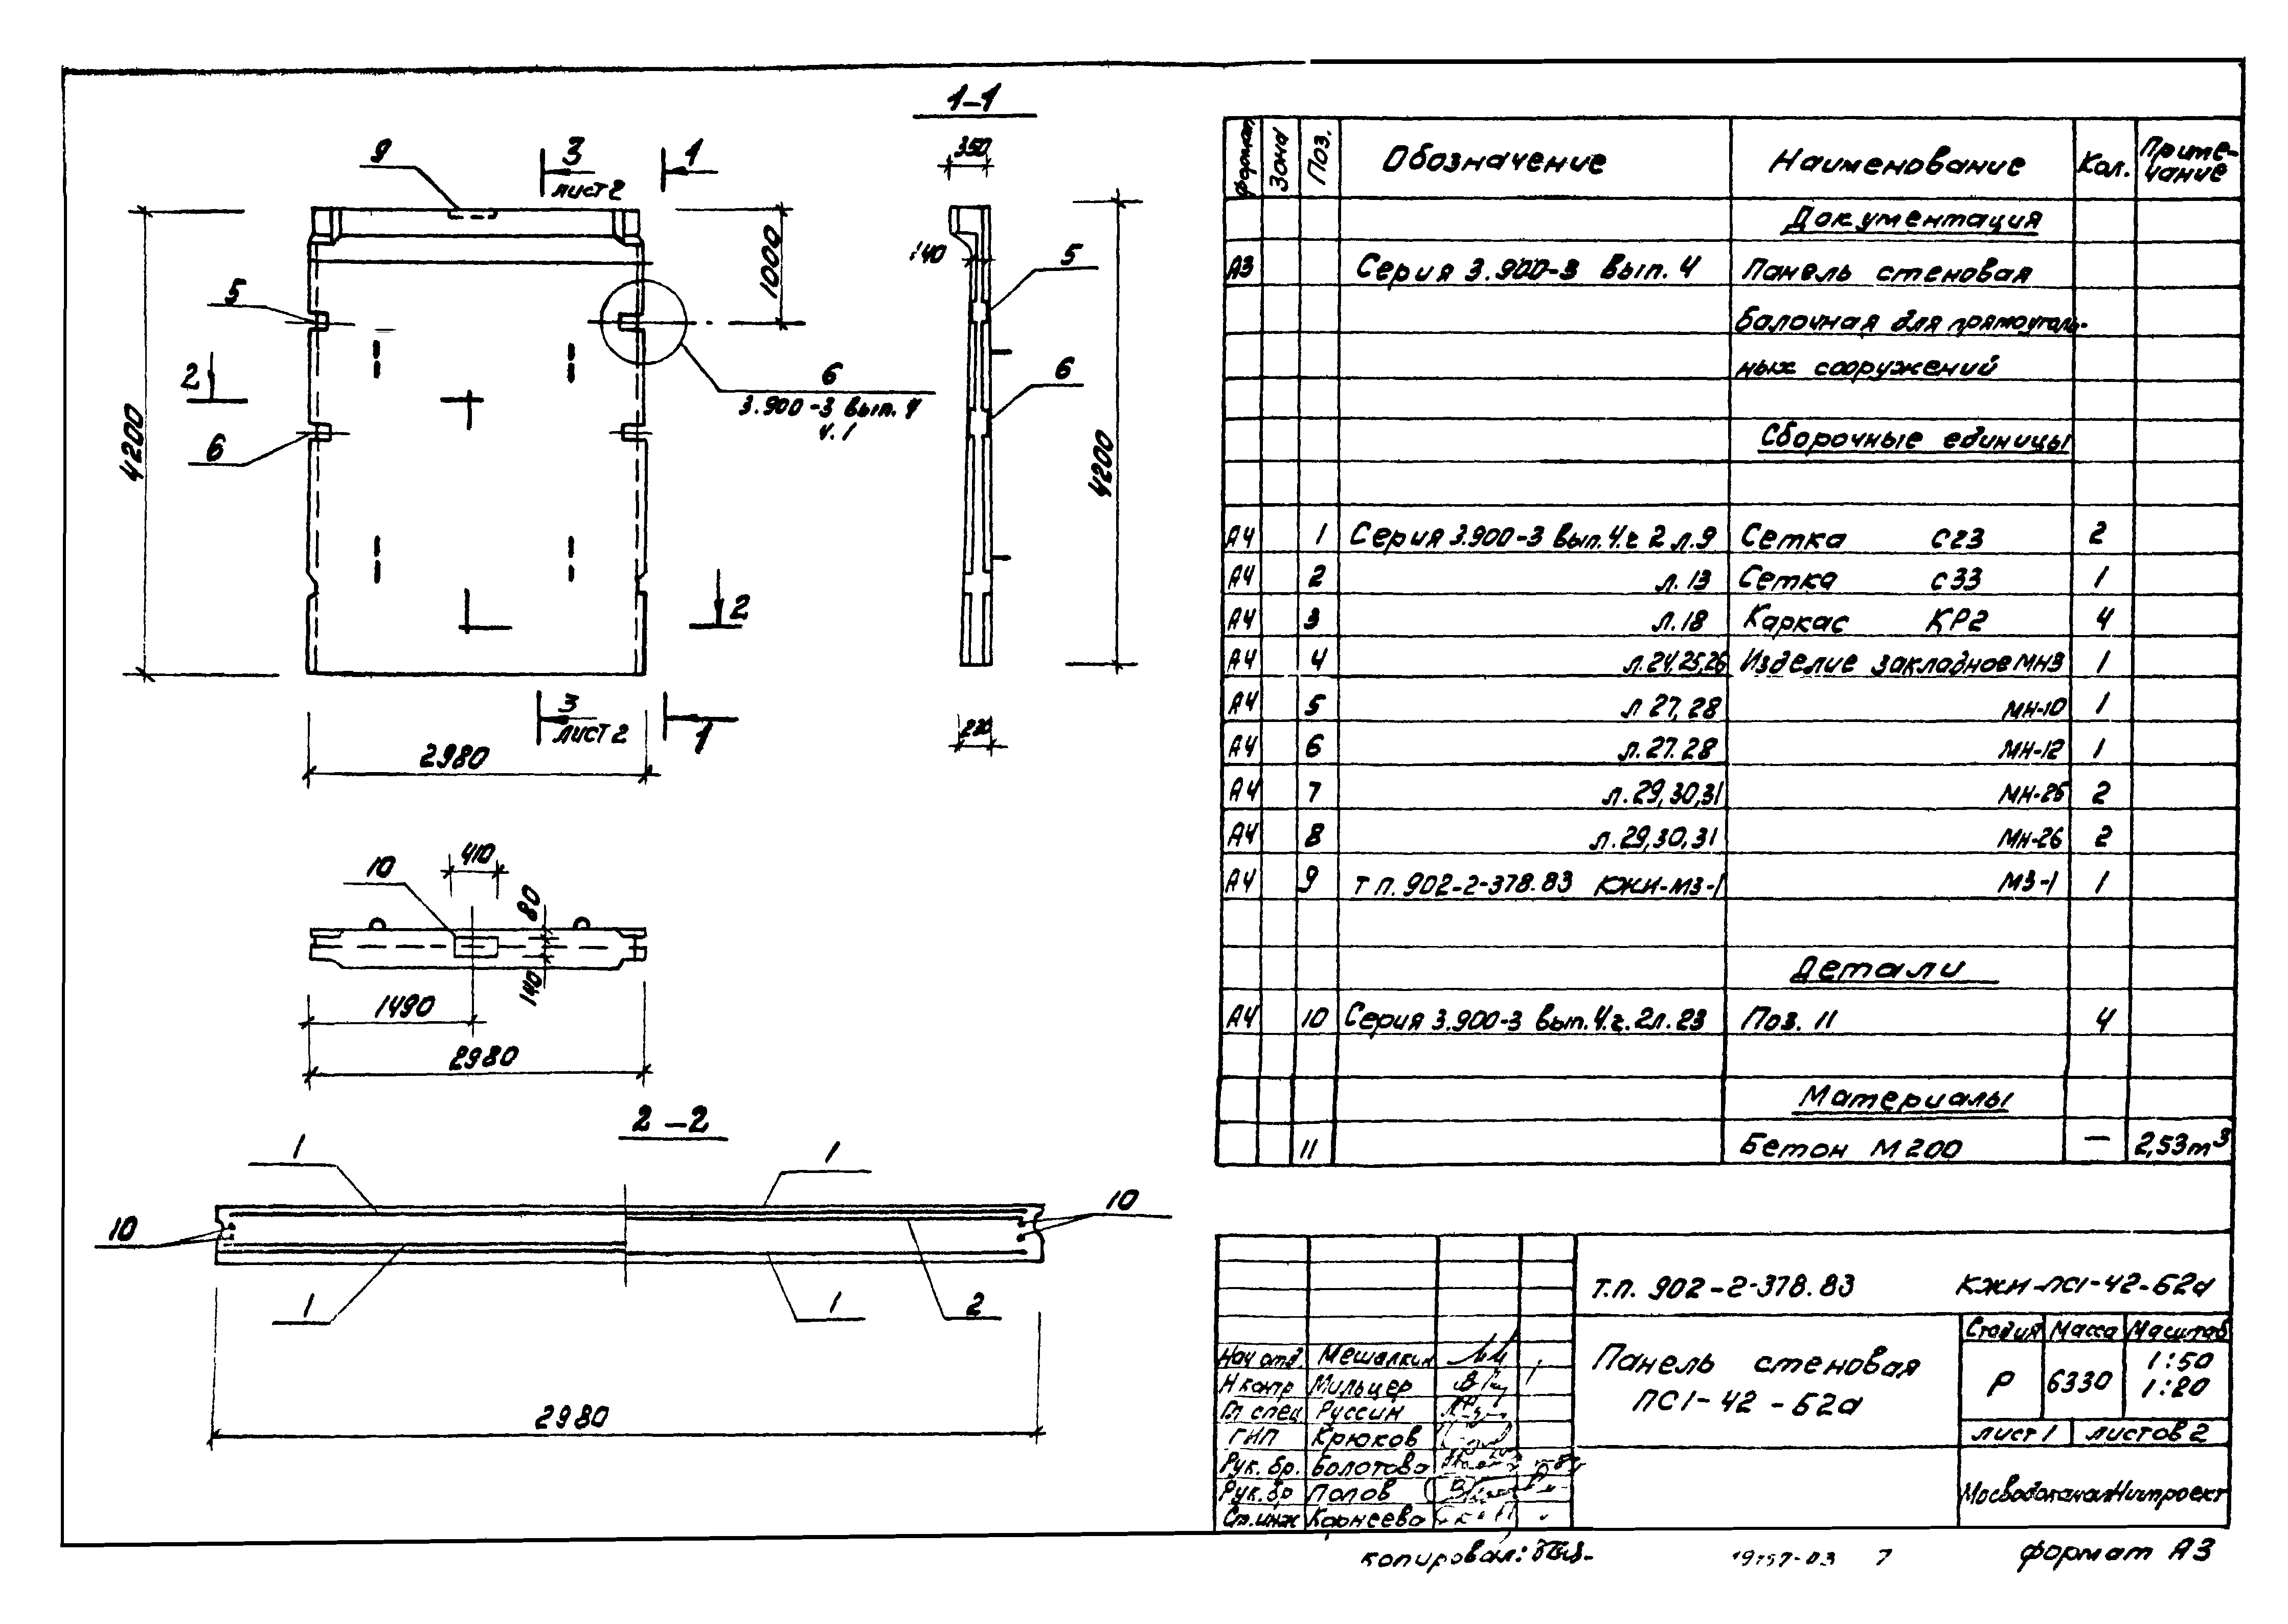 1-1
350
9
3
лист 2
1
4200
1000
140
5
5
2
6
3.900-3 вып. 4
ч. 1
6
6
4200
2
3
лист 2
1
2980
230
10
410
80
140
1490
2980
2-2
1
1
10
10
1
1
2
2980
формат
Зона
Поз.
Обозначение
Наименование
Кол.
Приме-
чание
Документация
А3 Серия 3.900-3 вып. 4 Панель стеновая
балочная для прямоуголь-
ных сооружений
Сборочные единицы
А4 1 Серия 3.900-3 вып. 4. ч 2 л. 9 Сетка С23 2
А4 2 л. 13 Сетка С33 1
А4 3 л. 18 Каркас КР2 4
А4 4 л. 24, 25, 26 Изделие закладное МН3 1
А4 5 л 27, 28 МН-10 1
А4 6 л. 27. 28 МН-12 1
А4 7 л. 29, 30, 31 МН-25 2
А4 8 л. 29, 30, 31 МН-26 2
А4 9 т п. 902-2-378.83 КЖИ-МЗ-1 МЗ-1 1
Детали
А4 10 Серия 3.900-3 вып. 4. ч. 2 л. 23 Поз. 11 4
Материалы
11 Бетон М 200 — 2,53 м³
Т.П. 902-2-378.83 КЖИ-ПС1-42-Б2а
Панель стеновая
ПС1-42-Б2а
Стадия Масса Масштаб
Р 6330 1:50
1:20
лист 1 листов 2
МосводоканалНИИпроект
Нач отд Мешалкин
Н контр Мильцер
Гл спец Руссин
ГИП Крюков
Рук. бр. Болотова
Рук. бр Попов
Ст. инж Корнеева
копировал:
7
формат А3